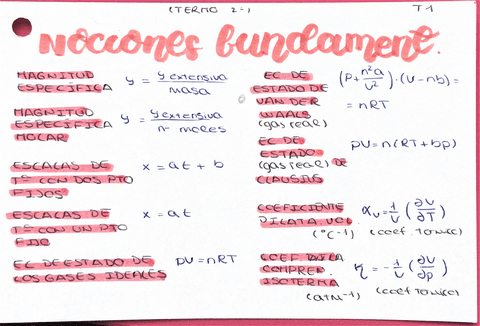 (TERMO 2-)
T1
NOCCONES fundament.
MAGNITUD
ESPECÍFICA
y = y extensiva / masa
MAGNITUD
ESPECÍFICA
MOLAR
y = y extensiva / nº moles
ESCALAS DE
Tª CON DOS PTO
FIJOS
x = at + b
ESCALAS DE
Tª CON UN PTO
FIJO
x = at
EC DE ESTADO DE
LOS GASES IDEALES
pV = nRT
EC DE
ESTADO DE
VAN DER
WAALS
(gas real)
(p + n²a / V²) · (V - nb) =
= nRT
EC DE
ESTADO
(gas real) DE
CLAUSIUS
pV = n(RT + bp)
COEFICIENTE
DILATA VOL.
(°C-1)
αv = 1/V (∂V/∂T)
(coef. térmico)
COEF DE LA
COMPRES.
ISOTERMA
(atm-1)
η = -1/V (∂V/∂p)
(coef térmico)